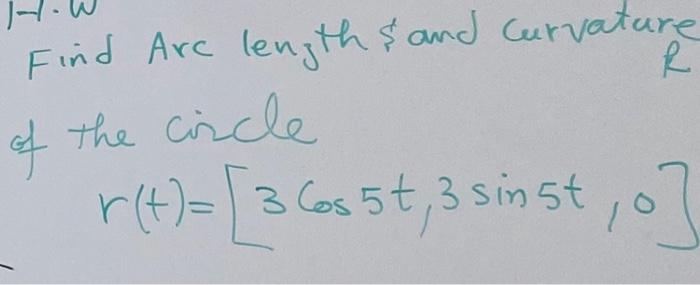 H.W
Find Arc length S and Curvature
R
of the circle
r(t)=[3 Cos 5t, 3 sin 5t, 0]